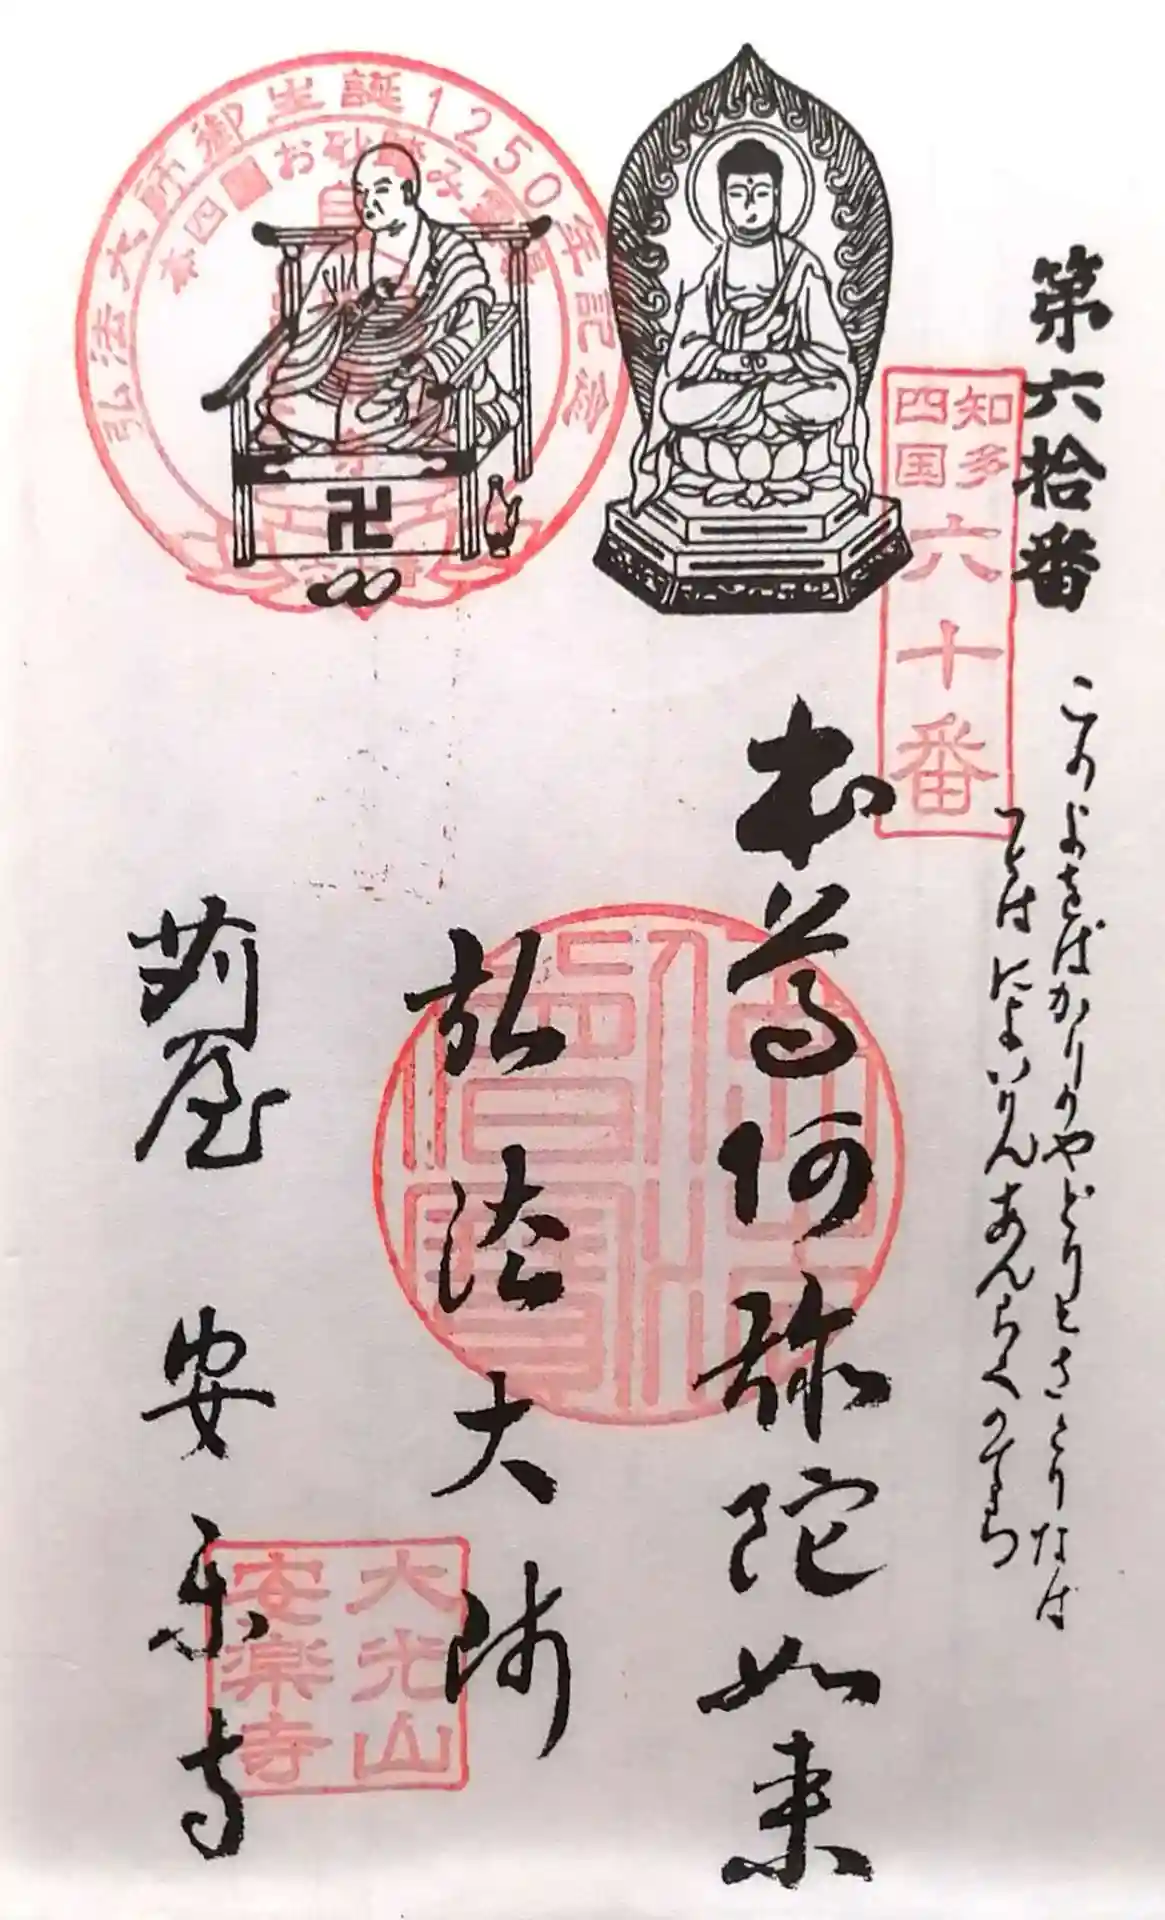 第六拾番
知多
四国
六十番
このよをばかりのやどりとさとりなば
つとはによいりんあんらくのみち
本尊阿弥陀如来
弘法大師
苅屋 安楽寺
大光山
安楽寺
弘法大師御生誕1250年記念
お砂踏み霊場
佛法僧寶
卍